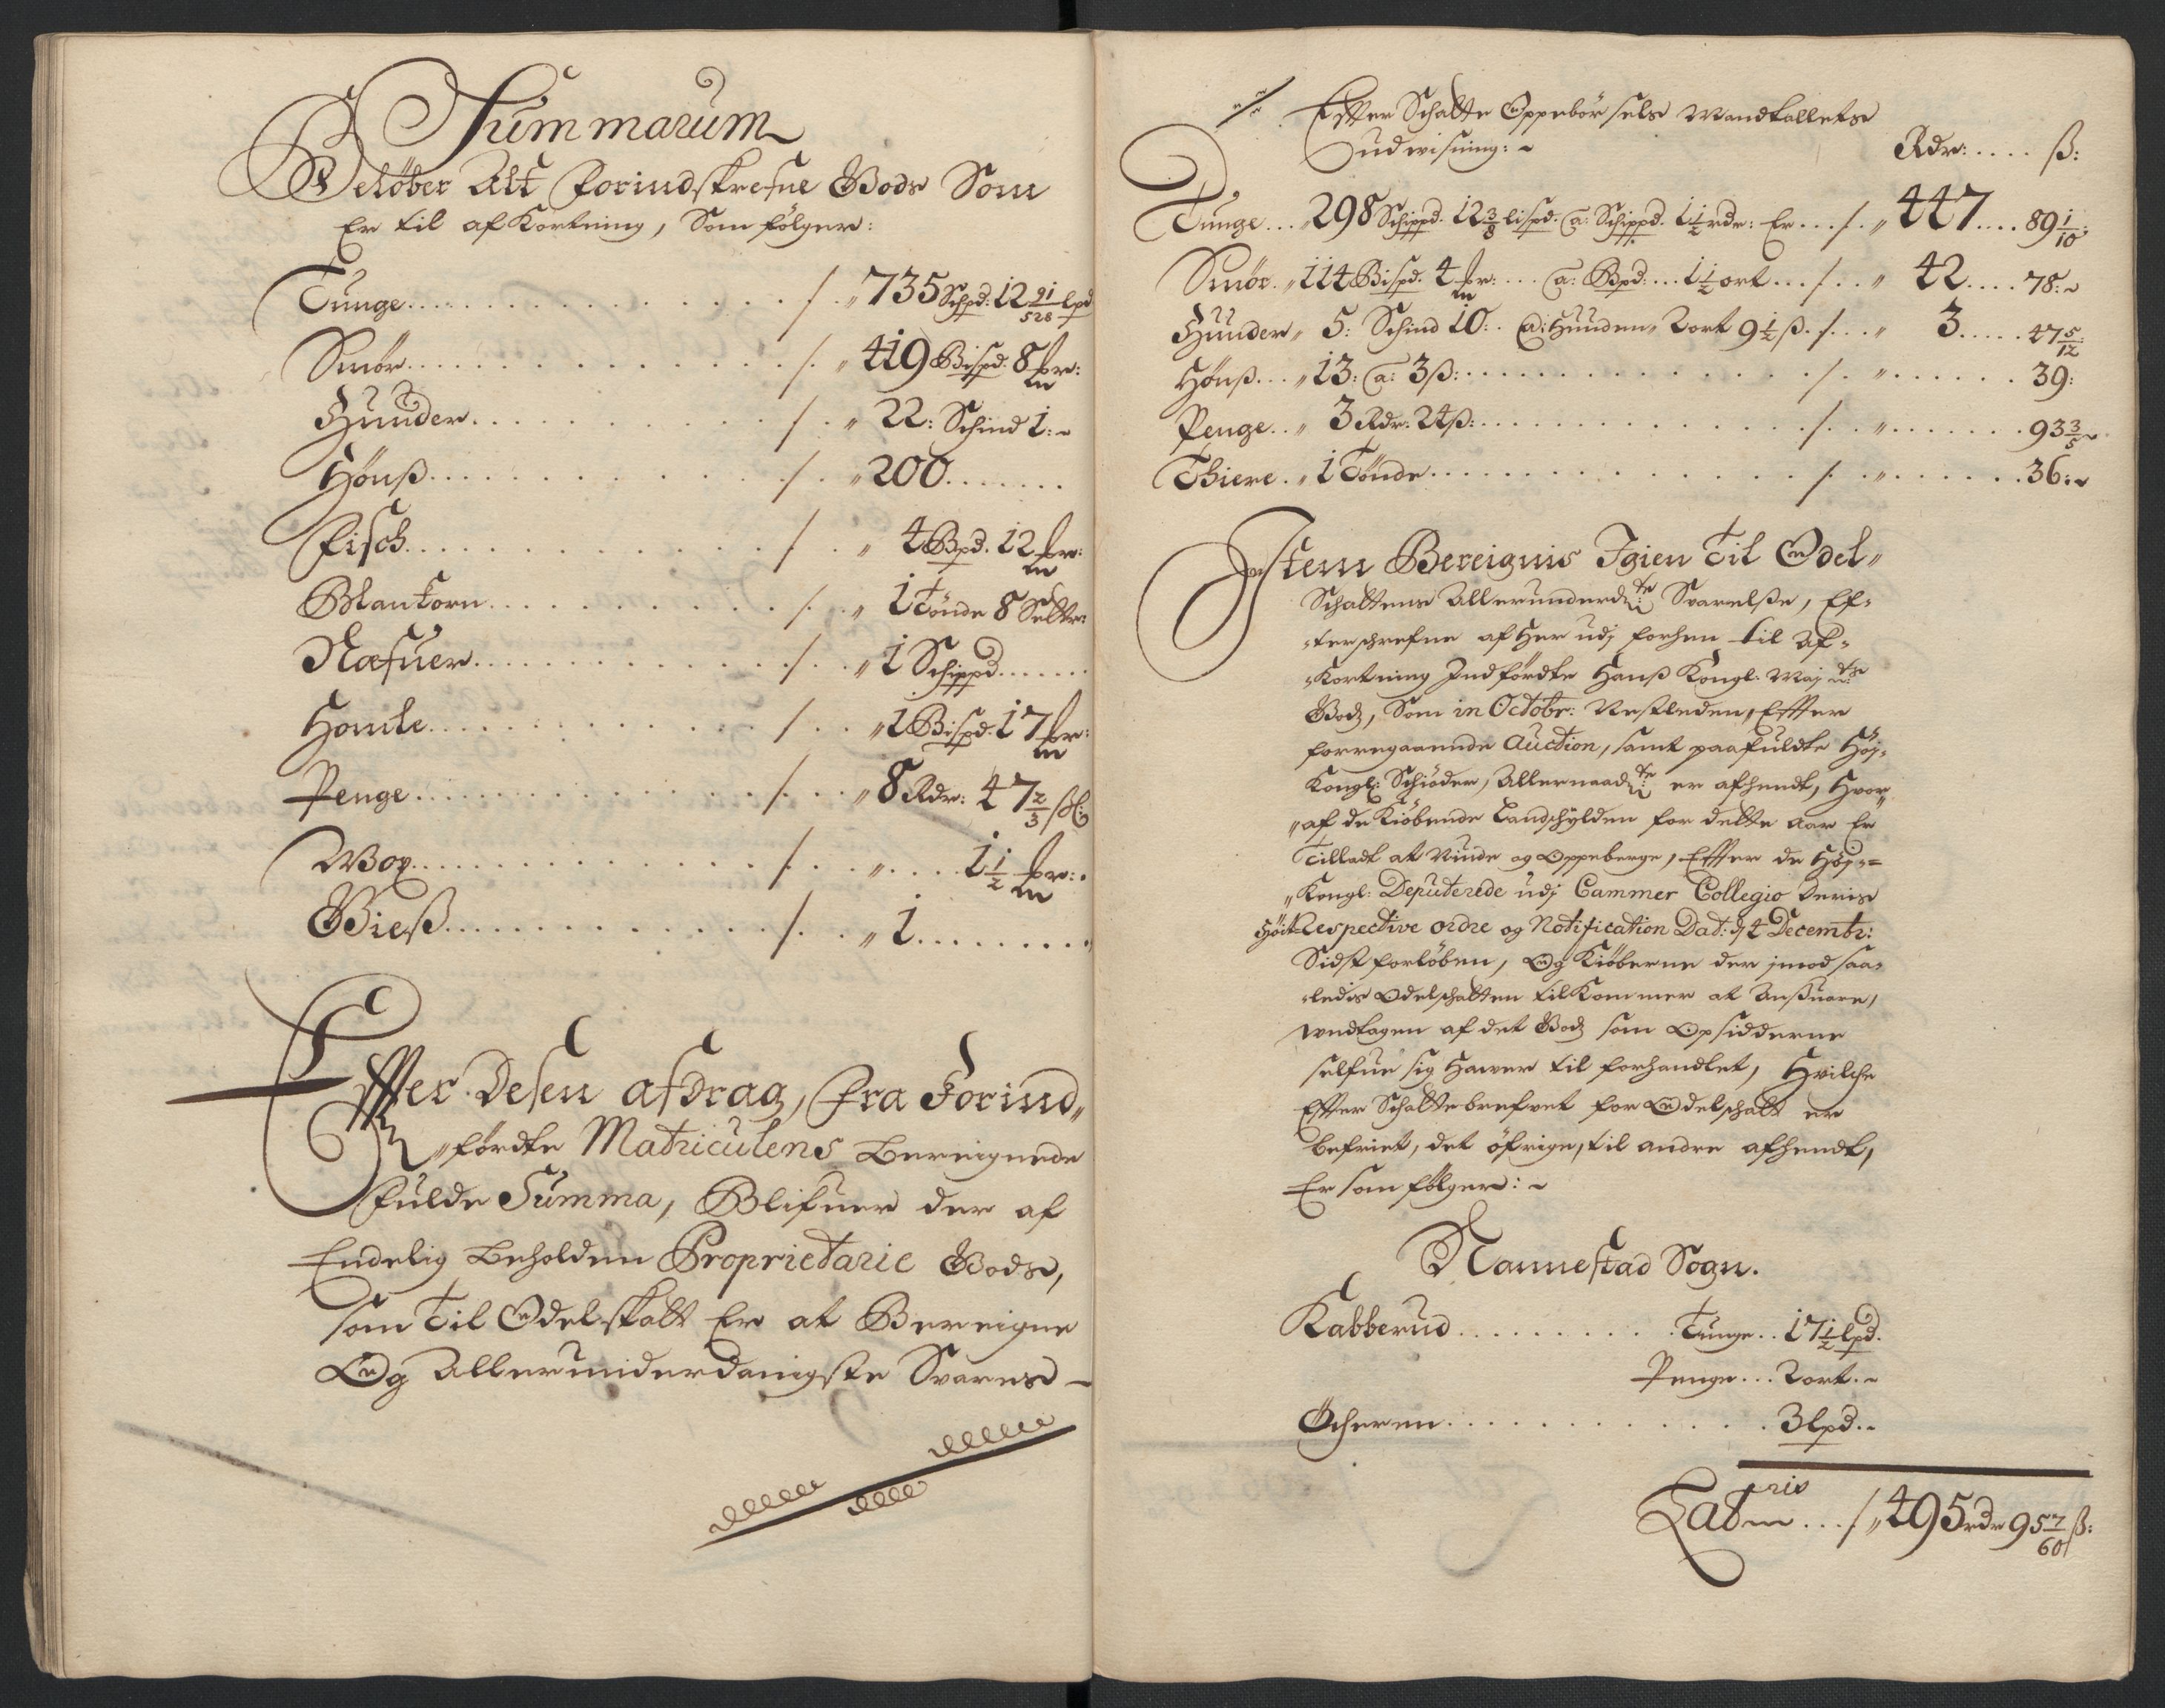 Summarum
Beløber Alt forindskrefne Godz Som
Er til afKortning, Som følger:
Tunge ... /. „ 735 Schpd: 12 91/528 lpd
Smör ... /. „ 419 Bispd. 8 mr:
Huuder ... /. „ 22: Schind 1:
Hönß ... /. „ 200
Fisch ... /. „ 4 Bpd. 12 mr:
Blankorn ... /. „ 1 Tönde 8 Settr:
Næfuer ... /. „ 1 Schippd
Homle ... /. „ 1 Bispd. 17 mr:
Penge ... /. „ 8 Rdr: 47 2/3 ß:
Wox ... /. „ 1 1/2 mr:
Gieß ... /. „ 1
Effter Desen afdrag, fra Forind„
„førdte Matriculens Bereignede
fulde Summa, Blifuer der af
Endelig Beholden Proprietarie Godz,
som Til Odelskatt Er at Bereigne
Og Allerunderdanigste Svares
/. Effter Schatte Oppebörsels Mandtallets
udwisning:
Rdr: .... ß:
Tunge ... „ 298 Schippd. 12 3/8 lispd. a: Schippd. 1 1/2 rdr: Er ... /. „ 447 .... 89 1/10:
Smör. „ 114 Bispd. 4 mr: ... a: Bpd: ... 1 1/2 ort ... /. „ 42 .... 78:
Huuder „ 5: Schind 10: a: Huuden „ 2 ort 9 1/2 ß. /. „ 3 ..... 47 5/12:
Hönß ... „ 13: a: 3 ß: ... /. „ ... 39:
Penge .. „ 3 Rdr: 24 ß: ... /. „ ... 93 3/5
Thiere . „ 1 Tönde ... /. „ ... 36:
Item Bereignis Igien Til Odel„
Schattens Allerunderd: ste Svarelße, Ef„
„terschrefne af Her udj forhen til Af„
„Kortning Indførdte Hanß Kongl: Maj: ts
Godz, Som in Octobr: Nestleden, Effter
forregaaende Auction, samt paafuldte Höj„
Kongl: Schiöder, Allernaad: ste er afhendt, Hvor„
„af de Kiöbende Landschylden for dette Aar Er
Tilladt at Niude og Oppeberge, Effter de Höj„
„Kongl: Deputerede udj Cammer Collegio Deris
Höit Respective Ordre og Notification Dat: d 4 Decembr:
Sidst forløben, Og Kiöberne der imod saa„
„ledis Odelschatten tilKommer at Anßuare,
undtagen af det Godz som Opsidderne
selfue sig Hawer til forhandlet, Hvilche
Effter Schattebrefvet for Odelschatt er
befriet, det öfrige, til andre afhendt,
Er som følger:
Nannestad Sogn.
Kabberud ... Tunge .. 17 1/2 lpd.
Penge ... 2 ort.
Ócheren ... 3 lpd.
Lateris ... /. „ 495 rdr 95 7/60 ß: